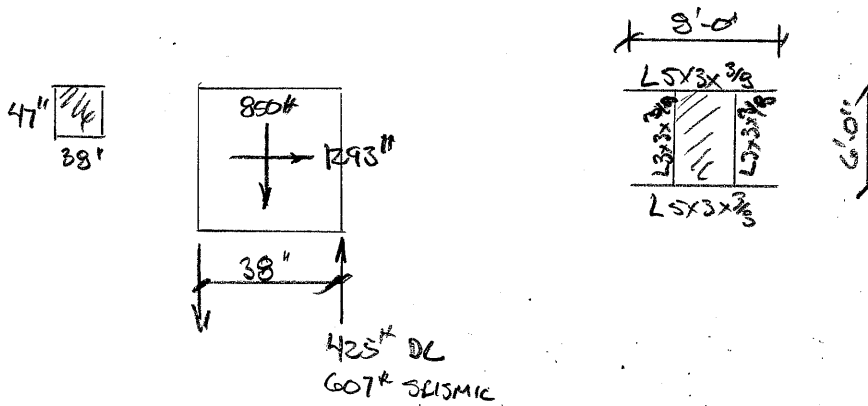 47"
38"
850#
1293#
38"
425# DL
607# SEISMIC
8'-0"
L5x3x3/8
L3x3x3/8
L3x3x3/8
6'-0"
L5x3x3/8